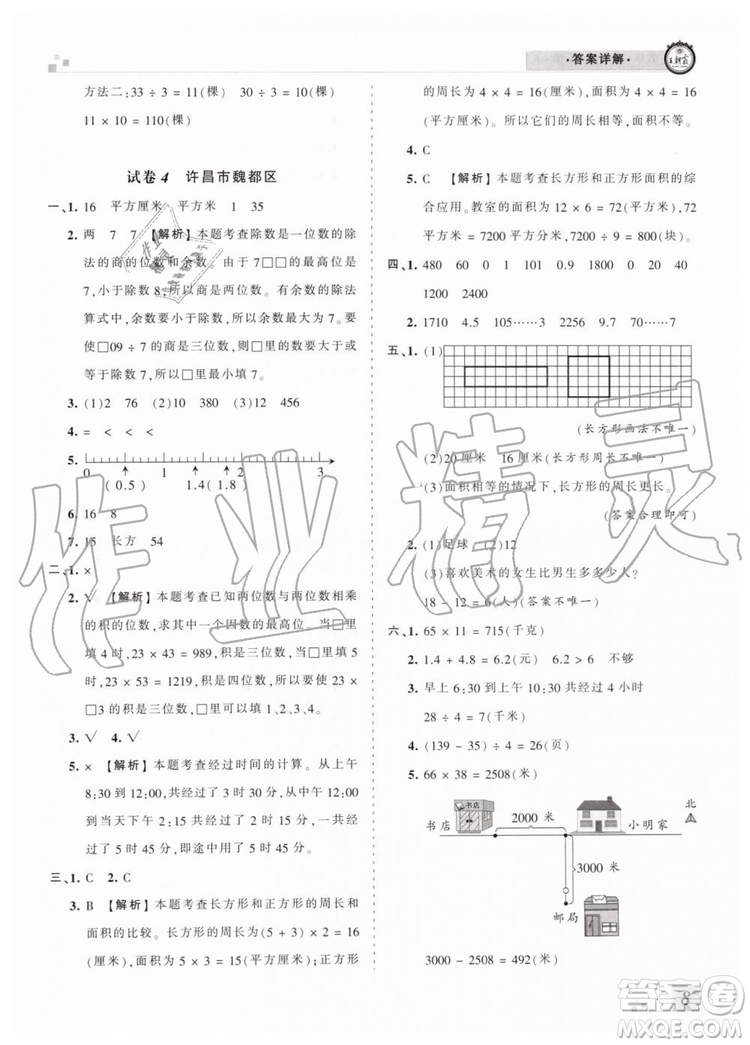 ·答案详解·
王朝霞
方法二:33 ÷ 3 = 11(棵)　30 ÷ 3 = 10(棵)
11 × 10 = 110(棵)
试卷 4　许昌市魏都区
一、1. 16　平方厘米　平方米　1　35
2. 两　7　7　【解析】本题考查除数是一位数的除
法的商的位数和余数。由于 7□□的最高位是
7,小于除数 8,所以商是两位数。有余数的除法
算式中,余数要小于除数,所以余数最大是 7。要
使□09 ÷ 7 的商是三位数,则□里的数要大于或
等于除数 7,所以□里最小填 7。
3. (1)2　76　(2)10　380　(3)12　456
4. =　<　<　<
5.
0　1　2　3
( 0.5 )　1.4 ( 1.8 )
6. 16　8
7. 15　长方　54
二、1. ×
2. √　【解析】本题考查已知两位数与两位数相乘
的积的位数,求其中一个因数的最高位。当□里
填 4 时,23 × 43 = 989,积是三位数,当□里填 5
时,23 × 53 = 1219,积是四位数,所以要使 23 ×
□3 的积是三位数,□里可以填 1、2、3、4。
3. √　4. √
5. ×　【解析】本题考查经过时间的计算。从上午
8:30 到 12:00 经过了 3 时 30 分,从 12:00 到
当天下午 2:15 经过了 2 时 15 分,所以一共经过
了 5 时 45 分,即途中用了 5 时 45 分。
三、1. C　2. C
3. B　【解析】本题考查长方形和正方形的周长和
面积的比较。长方形的周长为(5 + 3) × 2 = 16
(厘米),面积为 5 × 3 = 15(平方厘米);正方形
的周长为 4 × 4 = 16(厘米),面积为 4 × 4 = 16
(平方厘米)。所以它们的周长相等,面积不相等。
4. C
5. C　【解析】本题考查长方形和正方形面积的综
合应用。教室的面积为 12 × 6 = 72(平方米),72
平方米 = 7200 平方分米,7200 ÷ 9 = 800(块)。
四、1. 480　60　0　101　0.9　1800　0　20　40
1200　2400
2. 1710　4.5　105……3　2256　9.7　70……7
五、1. (1)
(长方形画法不唯一)
(2)20 厘米　16 厘米(长方形周长不唯一)
(3)面积相等的情况下,长方形的周长更长。
(答案合理即可)
2. (1)足球　(2)12
(3)喜欢美术的女生比男生多多少人?
18 - 12 = 6(人)(答案不唯一)
六、1. 65 × 11 = 715(千克)
2. 1.4 + 4.8 = 6.2(元)　6.2 > 6　不够
3. 早上 6:30 到上午 10:30 共经过 4 小时
28 ÷ 4 = 7(千米)
4. (139 - 35) ÷ 4 = 26(页)
5. 66 × 38 = 2508(米)
北
书店
书店　2000 米　小明家
3000 米
邮局
3000 - 2508 = 492(米)
8
作业精灵
答案卷
MXQE.COM